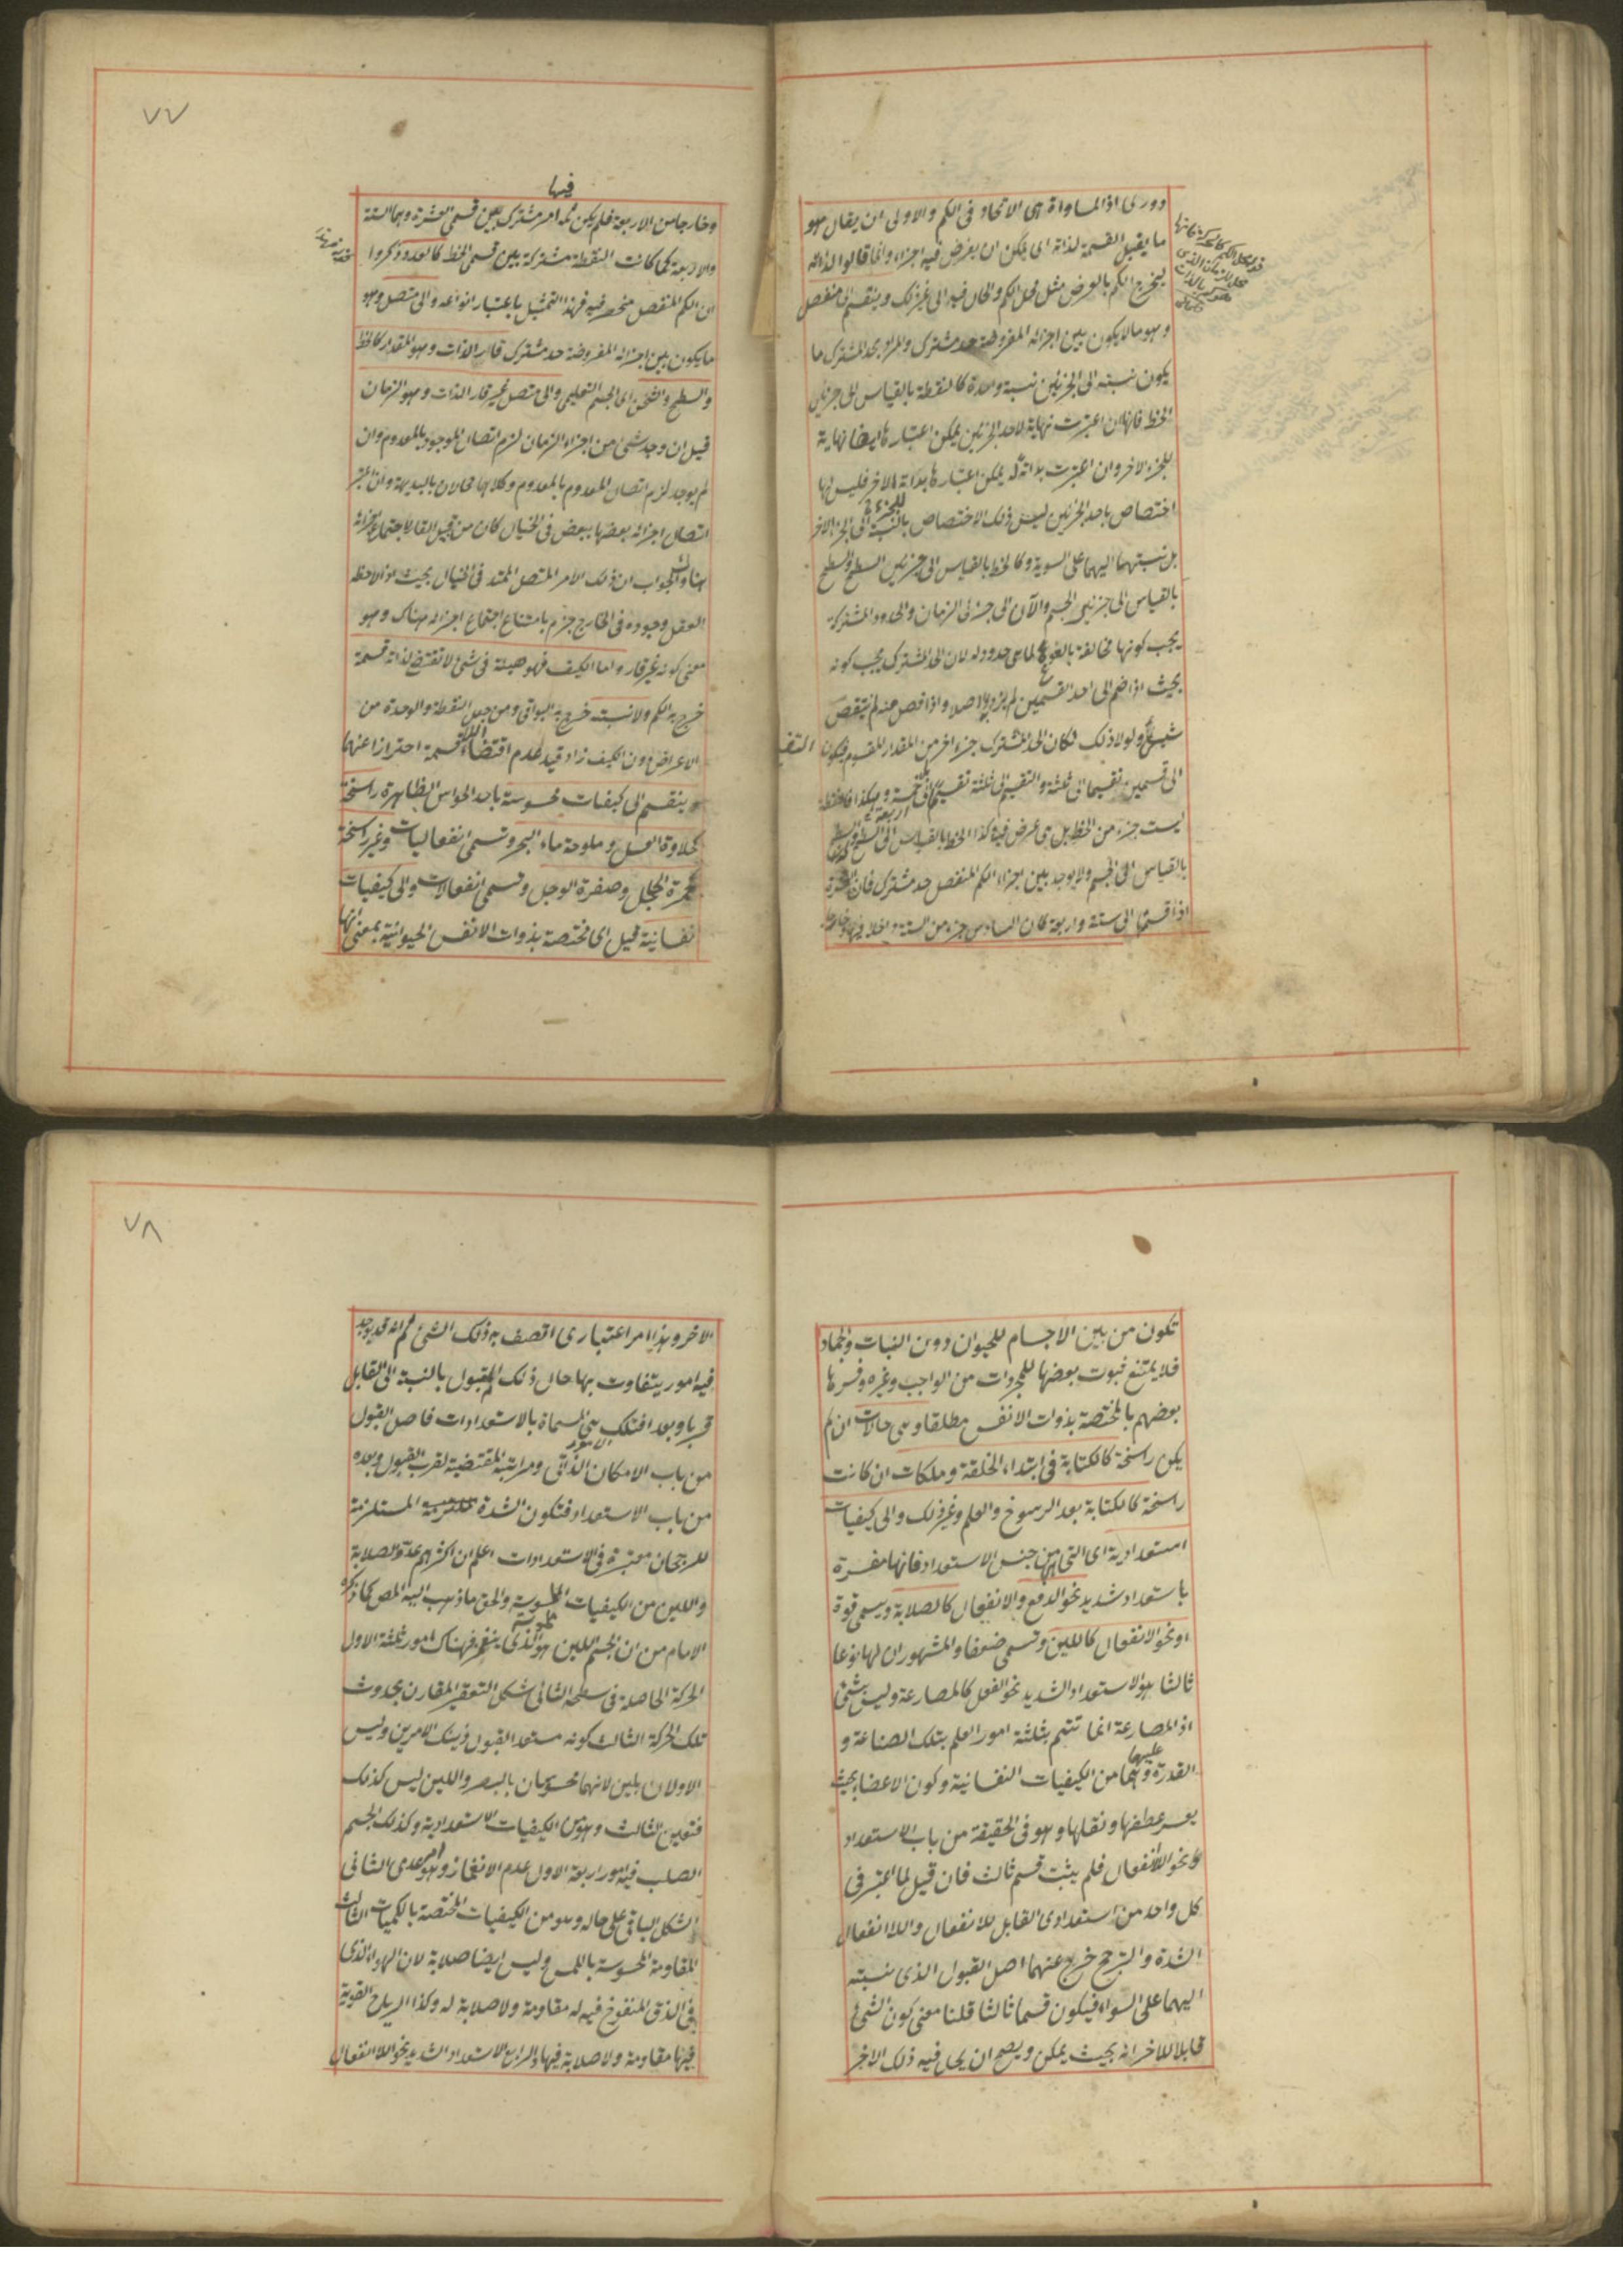 دوری اذ المساواة هی الاتحاد فی الکم والاولی ان یقال هو
ما یقبل القسمة لذاته ای یمکن ان یفرض فیه اجزاء وانما قالوا لذاته
لیخرج الکم بالعرض مثل محل الکم والحال فیه الی غیر ذلک وینقسم الی منفصل
وهو ما لا یکون بین اجزائه المفروضة حد مشترک والمراد بالحد المشترک ما
یکون نسبته الی الجزئین نسبة واحدة کالنقطة بالقیاس الی جزئی
الخط فانها ان اعتبرت نهایة لاحد الجزئین یمکن اعتبارها ایضا نهایة
للجزء الاخر وان اعتبرت بدایة له یمکن اعتبارها بدایة للاخر فلیس لها
اختصاص باحد الجزئین لیس ذلک الاختصاص بالنسبة الی الجزء الاخر
بل نسبتهما الیهما علی السویة وکالخط بالقیاس الی جزئی السطح والسطح
بالقیاس الی جزئی الجسم والآن الی جزئی الزمان والحدود المشترکة
یجب کونها مخالفة بالنوع لما هی حدود له لان الحد المشترک یجب کونه
بحیث اذا ضم الی احد القسمین لم یزدد اصلا واذا فصل عنه لم ینقص
شیئا ولولا ذلک لکان الحد المشترک جزءا اخر من المقدار المقسوم فیکون التقسیم
الی قسمین تقسیما الی ثلثة والتقسیم الی ثلثة تقسیما الی خمسة وهکذا فالنقطة
لیست جزء من الخط بل هی عرض فیه وکذا الخط بالقیاس الی السطح والسطح
بالقیاس الی الجسم ولا یوجد بین اجزاء الکم المنفصل حد مشترک فان العشرة
اذا قسمتها الی ستة واربعة کان السادس جزء من الستة داخلا فیها وخارجا
۷۷
فیها
وخارجا من الاربعة فلم یکن ثمه امر مشترک بین قسمی العشرة وهما الستة
والاربعة کما کانت النقطة مشترکة بین قسمی الخط کالعدد وذکروا
ان الکم المنفصل منحصر فیه فهذا التمثیل باعتبار انواعه والی متصل وهو
ما یکون بین اجزائه المفروضة حد مشترک قار الذات وهو المقدار کالخط
والسطح والثخن ای الجسم التعلیمی والی متصل غیر قار الذات وهو الزمان
قیل ان وجد شئ من اجزاء الزمان لزم اتصال الموجود بالمعدوم وان
لم یوجد لزم اتصال المعدوم بالمعدوم وکلاهما محالان بالبدیهة وان اعتبر
اتصال اجزائه بعضها ببعض فی الخیال کان من قبیل القار لاجتماع اجزائه
هناک والجواب ان ذلک الامر المتصل الممتد فی الخیال بحیث اذا لاحظ
العقل وجوده فی الخارج جزم بامتناع اجتماع اجزائه هناک وهو
معنی کونه غیر قار واما الکیف فهو هیئة فی شئ لا تقتضی لذاته قسمة
خرج به الکم ولا نسبة خرج به البواقی ومن جعل النقطة والوحدة من
الاعراض دون الکیف زاد قید عدم اقتضاء اللاقسمة احترازا عنهما
وینقسم الی کیفیات محسوسة باحد الحواس الظاهرة راسخة
کحلاوة العسل وملوحة ماء البحر وتسمی انفعالیات وغیر راسخة
کحمرة الخجل وصفرة الوجل وتسمی انفعالات والی کیفیات
نفسانیة قیل ای مختصة بذوات الانفس الحیوانیة بمعنی انها
تکون من بین الاجسام للحیوان دون النبات والجماد
فلا یمتنع ثبوت بعضها للمجردات من الواجب وغیره وفسرها
بعضهم بالمختصة بذوات الانفس مطلقا وهی حالات ان لم
یکن راسخة کالکتابة فی ابتداء الخلقة وملکات ان کانت
راسخة کالکتابة بعد الرسوخ والعلم وغیر ذلک والی کیفیات
استعدادیة ای التی من جنس الاستعداد فانها مفسرة
باستعداد شدید نحو الدفع والانفعال کالصلابة ویسمی قوة
او نحو الانفعال کاللین وتسمی ضعفا والمشهور ان لها نوعا
ثالثا هو الاستعداد الشدید نحو الفعل کالمصارعة ولیس بشئ
اذ المصارعة انما تتم بثلثة امور العلم بتلک الصناعة و
القدرة علیها وهما من الکیفیات النفسانیة وکون الاعضاء بحیث
یعسر عطفها ونقلها وهو فی الحقیقة من باب الاستعداد
نحو اللاانفعال فلم یثبت قسم ثالث فان قیل لما اعتبر فی
کل واحد من استعدادی القابل للانفعال واللاانفعال
الشدة والترجح خرج عنهما اصل القبول الذی نسبته
الیهما علی السواء فیکون قسما ثالثا قلنا معنی کون الشئ
قابلا للاخر انه بحیث یمکن ویصح ان یحل فیه ذلک الاخر
۷۸
الاخر وهذا امر اعتباری اتصف به ذلک الشئ ثم انه قد یوجد
فیه امور یتفاوت بها حال ذلک المقبول بالنسبة الی القابل
قربا وبعدا فتلک هی المسماة بالاستعدادات فاصل القبول
من باب الامکان الذاتی ومراتبه المقتضیة لقرب القبول وبعده
من باب الاستعداد فتکون الشدة المستلزمة
للرجحان معتبرة فی الاستعدادات اعلم ان اکثرهم عدوا الصلابة
واللین من الکیفیات الملموسة والحق ما ذهب الیه المص کما ذکره
الامام من ان الجسم اللین هو الذی ینغمز فهناک امور ثلثة الاول
الحرکة الحاصلة فی سطحه الثانی شکل التقعیر المقارن بحدوث
تلک الحرکة الثالث کونه مستعدا لقبول ذینک الامرین ولیس
الاولان بلین لانهما محسوسان بالبصر واللین لیس کذلک
فتعین الثالث وهو من الکیفیات الاستعدادیة وکذلک الجسم
الصلب فیه امور اربعة الاول عدم الانغماز وهو امر عدمی الثانی
الشکل الباقی علی حاله وهو من الکیفیات المختصة بالکمیات الثالث
المقاومة المحسوسة باللمس ولیس ایضا صلابة لان الهواء الذی
فی الزق المنفوخ فیه له مقاومة ولا صلابة له وکذا الریاح القویة
فیها مقاومة ولا صلابة فیها والرابع الاستعداد الشدید نحو اللاانفعال